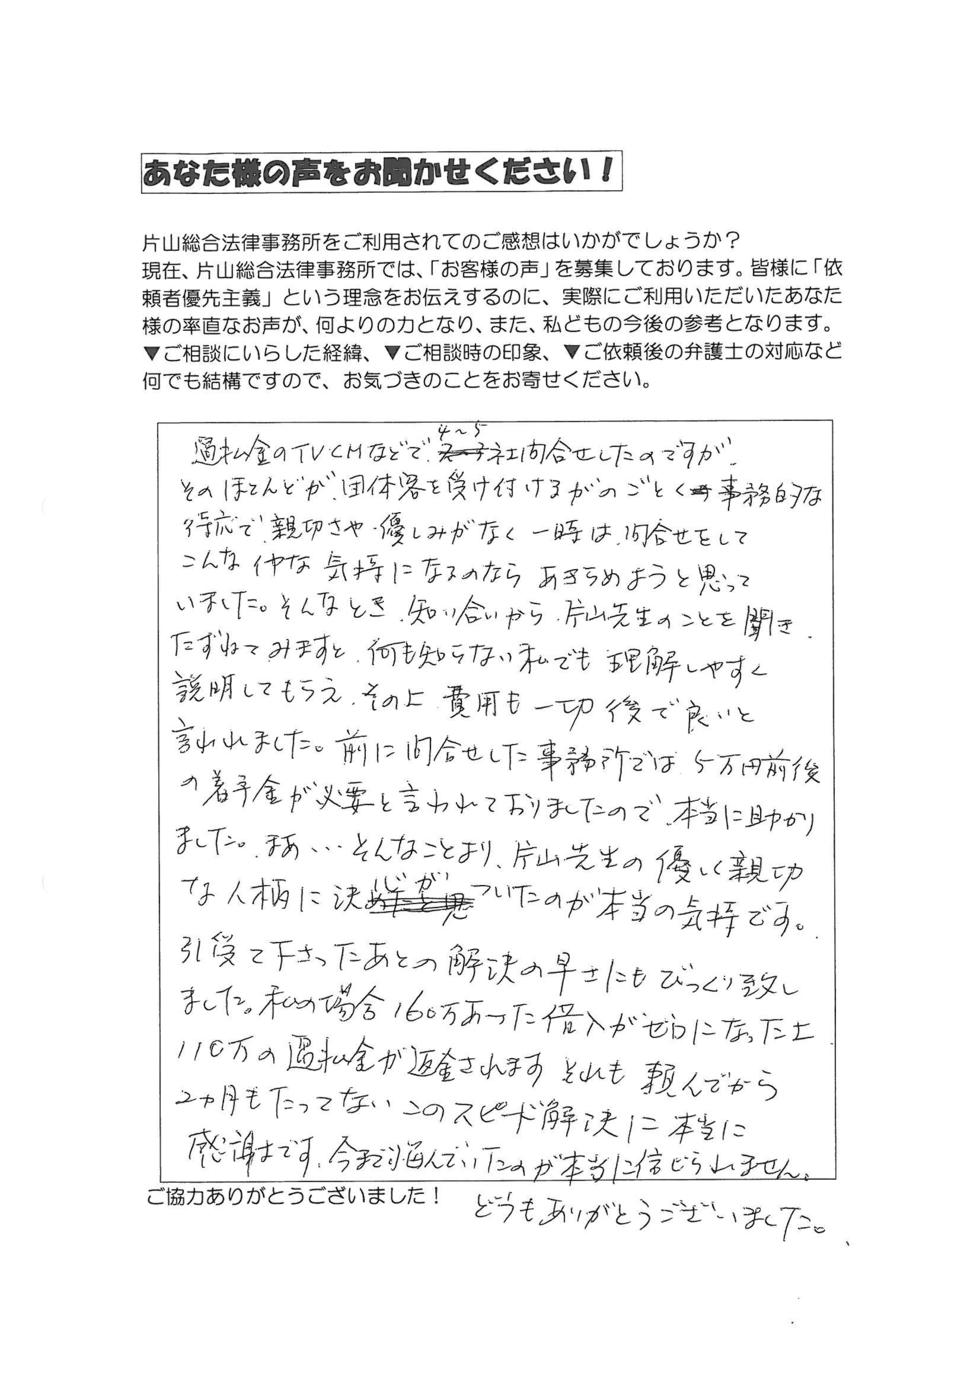 あなた様の声をお聞かせください！
片山総合法律事務所をご利用されてのご感想はいかがでしょうか？
現在、片山総合法律事務所では、「お客様の声」を募集しております。皆様に「依
頼者優先主義」という理念をお伝えするのに、実際にご利用いただいたあなた
様の率直なお声が、何よりの力となり、また、私どもの今後の参考となります。
▼ご相談にいらした経緯、▼ご相談時の印象、▼ご依頼後の弁護士の対応など
何でも結構ですので、お気づきのことをお寄せください。
過払金のTVCMなどで、4~5社問合せしたのですが、
そのほとんどが、団体客を受け付けるがのごとく事務的な
待応で、親切さや優しみがなく一時は、問合せをして
こんな仲な気持になるのなら あきらめようと思って
いました。そんなとき、知り合いから、片山先生のことを聞き、
たずねてみますと、何も知らない私でも理解しやすく
説明してもらえ、その上 費用も一切後で良いと
言われました。前に問合せした事務所では、5万円前後
の着手金が必要と言われておりましたので、本当に助かり
ました。まあ…そんなことより、片山先生の優しく親切
な人柄に決心がついたのが本当の気持です。
引受て下さったあとの解決の早さにもびっくり致し
ました。私の場合160万あった借入がゼロになった上
110万の過払金が返金されます それも頼んでから
2ヵ月もたってない このスピード解決に本当に
感謝です、今まで悩んでいたのが本当に信じられません。
ご協力ありがとうございました！
どうもありがとうございました。